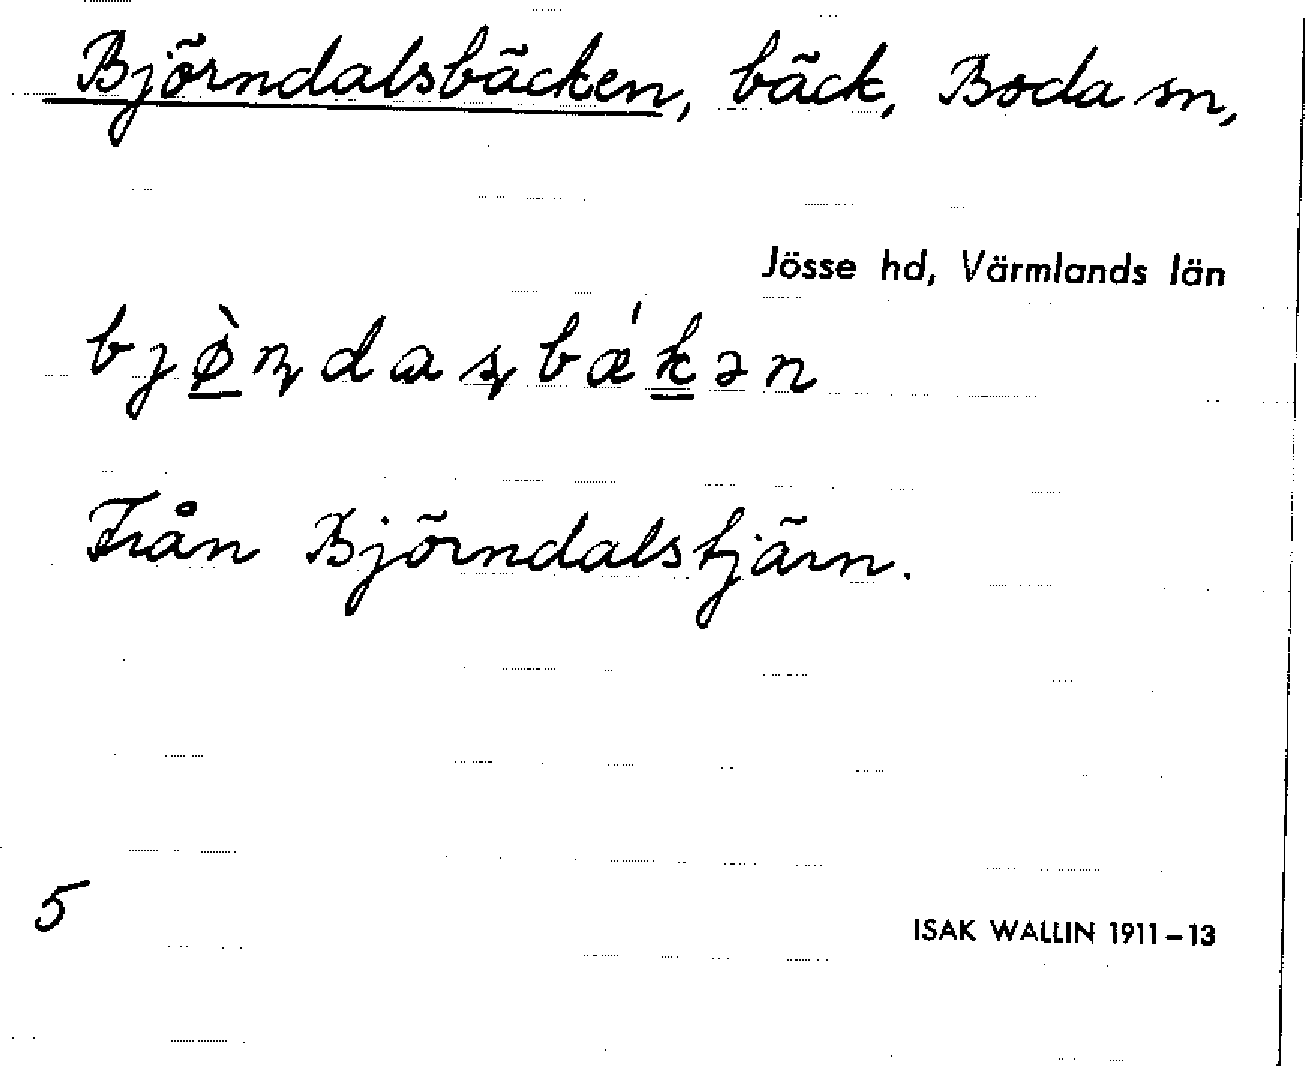 Björndalsbäcken, bäck, Boda sn,
Jösse hd, Värmlands län
bjø̀ɳdaʂbǽkən
Från Björndalstjärn.
5
ISAK WALLIN 1911–13